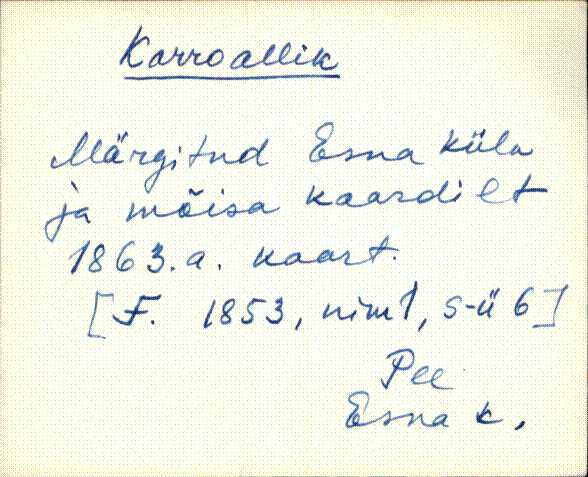 Karroallik
Märgitud Esna küla
ja mõisa kaardilt
1863.a. kaart.
[F. 1853, nim1, s-ü 6]
Pee
Esna k.